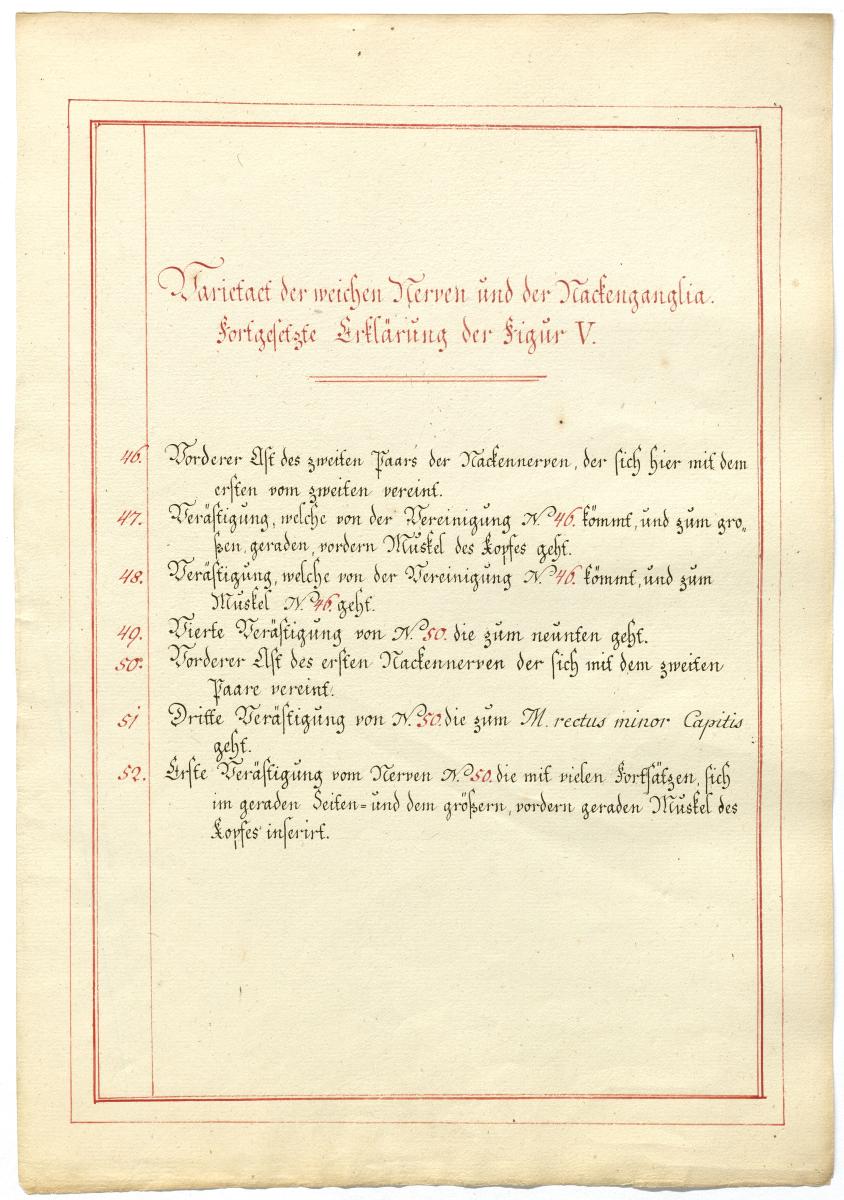 Varietaet der weichen Nerven und der Nackenganglia.
Fortgesetzte Erklärung der Figur V.
46. Vorderer Ast des zweiten Paars der Nackennerven, der sich hier mit dem
ersten vom zweiten vereint.
47. Verästigung, welche von der Vereinigung N.º 46. kömmt, und zum gro„
ßen, geraden, vordern Muskel des Kopfes geht.
48. Verästigung, welche von der Vereinigung N.º 46. kömmt, und zum
Muskel N.º 46. geht.
49. Vierte Verästigung von N.º 50. die zum neunten geht.
50. Vorderer Ast des ersten Nackennerven der sich mit dem zweiten
Paare vereint.
51 Dritte Verästigung von N.º 50. die zum M. rectus minor Capitis
geht.
52. Erste Verästigung vom Nerven N.º 50. die mit vielen Fortsätzen, sich
im geraden Seiten= und dem größern, vordern geraden Muskel des
Kopfes inserirt.